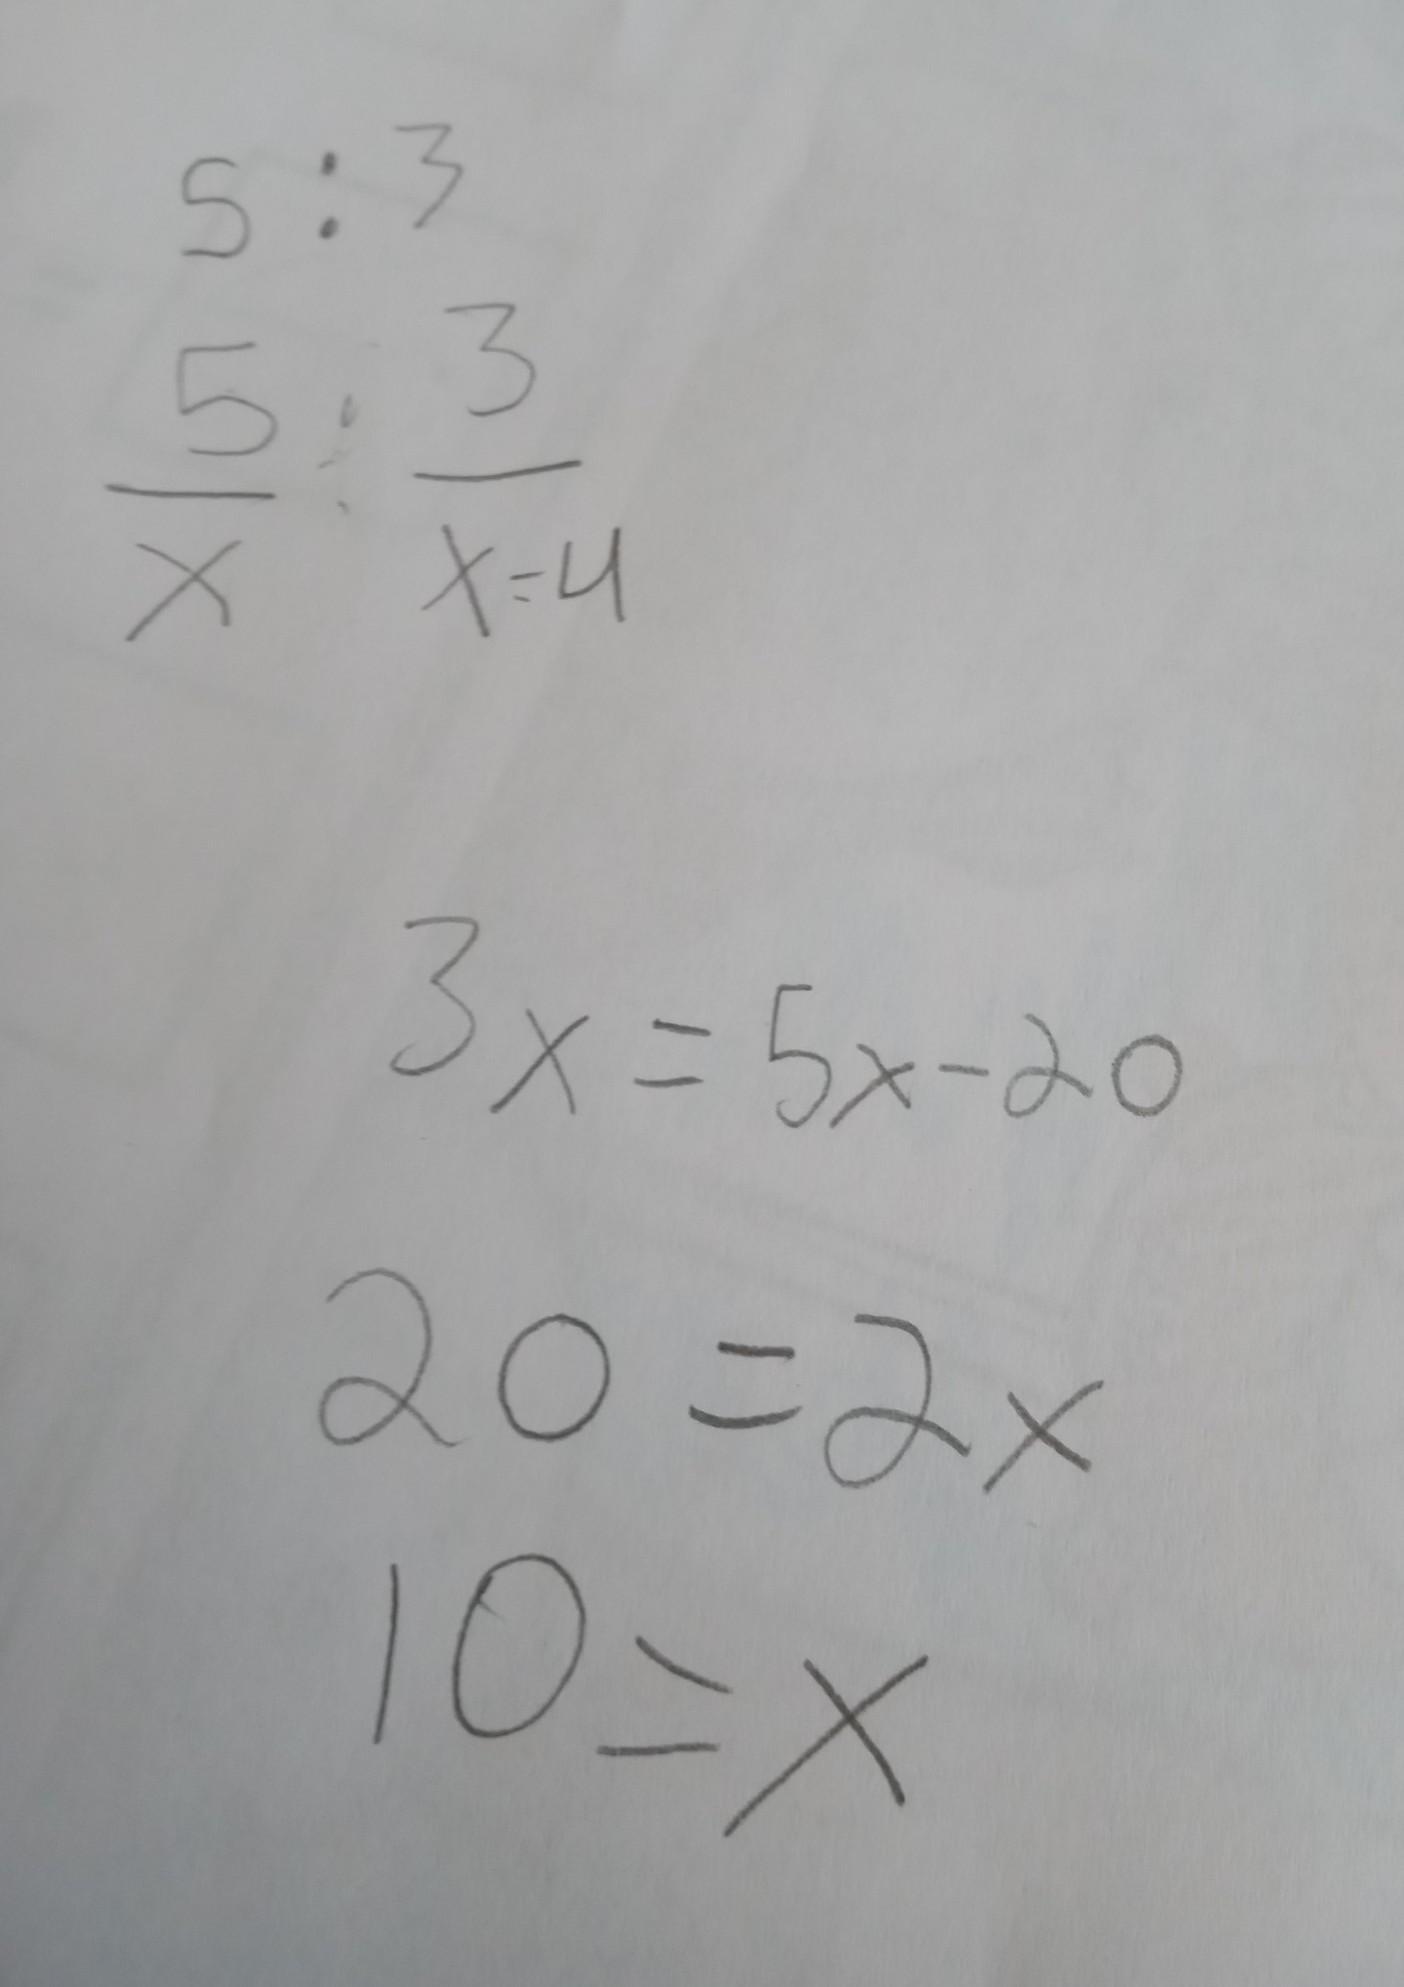 5:3
5/x : 3/x=4
3x=5x-20
20=2x
10=x